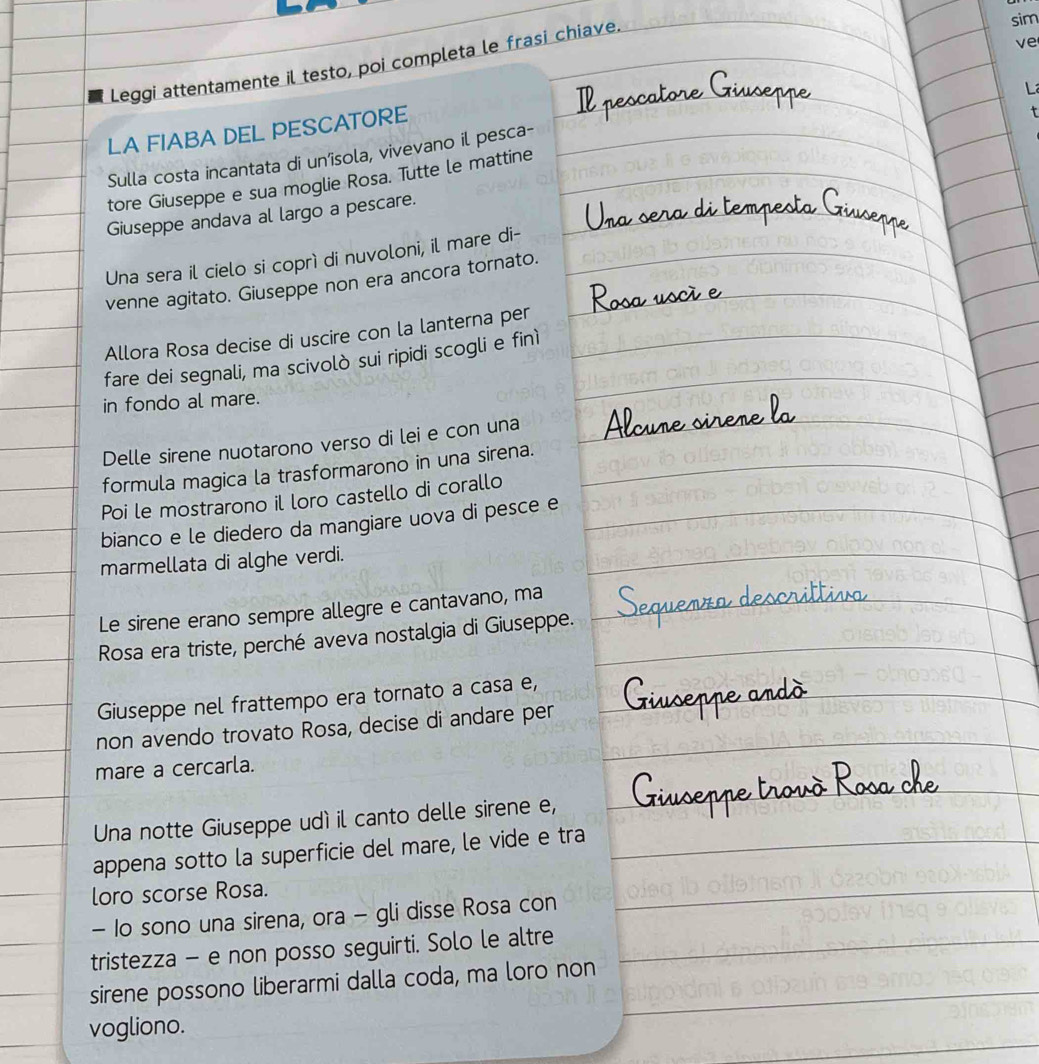 ■ Leggi attentamente il testo, poi completa le frasi chiave.
LA FIABA DEL PESCATORE
Sulla costa incantata di un'isola, vivevano il pesca-
tore Giuseppe e sua moglie Rosa. Tutte le mattine
Giuseppe andava al largo a pescare.
Il pescatore Giuseppe
Una sera il cielo si coprì di nuvoloni, il mare di-
venne agitato. Giuseppe non era ancora tornato.
Una sera di tempesta Giuseppe
Allora Rosa decise di uscire con la lanterna per
fare dei segnali, ma scivolò sui ripidi scogli e finì
in fondo al mare.
Rosa uscì e
Delle sirene nuotarono verso di lei e con una
formula magica la trasformarono in una sirena.
Poi le mostrarono il loro castello di corallo
bianco e le diedero da mangiare uova di pesce e
marmellata di alghe verdi.
Alcune sirene la
Le sirene erano sempre allegre e cantavano, ma
Rosa era triste, perché aveva nostalgia di Giuseppe.
Sequenza descrittiva
Giuseppe nel frattempo era tornato a casa e,
non avendo trovato Rosa, decise di andare per
mare a cercarla.
Giuseppe andò
Una notte Giuseppe udì il canto delle sirene e,
appena sotto la superficie del mare, le vide e tra
loro scorse Rosa.
– Io sono una sirena, ora – gli disse Rosa con
tristezza – e non posso seguirti. Solo le altre
sirene possono liberarmi dalla coda, ma loro non
vogliono.
Giuseppe trovò Rosa che
sim
ve